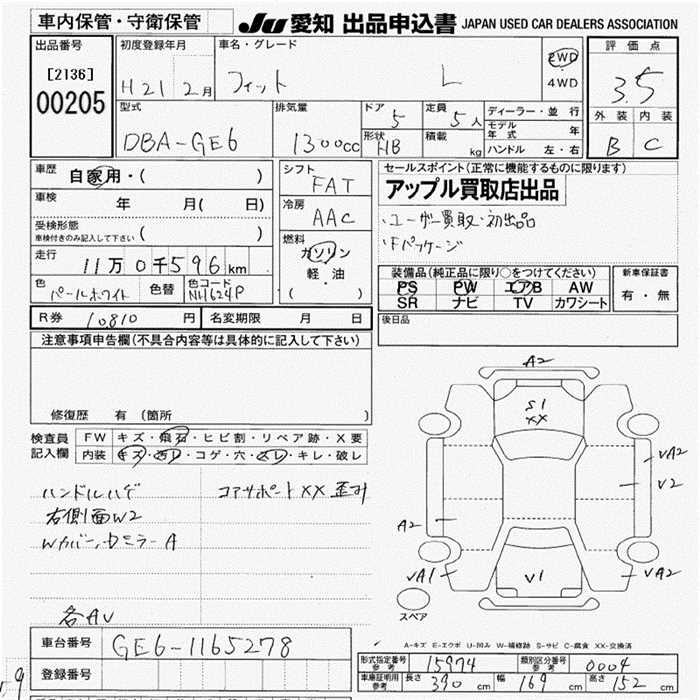 車内保管・守衛保管
JU 愛知 出品申込書 JAPAN USED CAR DEALERS ASSOCIATION
出品番号
[2136]
00205
初度登録年月
H21 2月
車名・グレード
フィット L
2WD
4WD
評価点
3.5
外装 内装
B C
型式
DBA-GE6
排気量
1300cc
ドア 5
定員 5人
形状 HB
積載 kg
ディーラー・並行
モデル年式 年
ハンドル 左・右
車歴 自家用・( )
車検 年 月( 日)
受検形態
車検付きのみ記入して下さい ( )
走行 11万0千596km
色 パールホワイト
色替
色コード NH624P
シフト
FAT
冷房
AAC
燃料
ガソリン
軽・油
( )
セールスポイント(正常に機能するものに限ります)
アップル買取店出品
・ユーザー買取・初出品
・Fパッケージ
装備品(純正品に限り○をつけてください)
PS PW エアB AW
SR ナビ TV カワシート
新車保証書
有・無
R券 10810円
名変期限 月 日
後日品
注意事項申告欄(不具合内容等は具体的に記入して下さい)
修復歴 有(箇所 )
検査員記入欄
FW キズ・飛石・ヒビ割・リペア跡・X要
内装 キズ・汚レ・コゲ・穴・スレ・キレ・破レ
ハンドルハゲ
コアサポートXX 歪み
右側面W2
各AV
A2
S1
XX
VA2
V2
A2
VA1
V1
VA2
スペア
A-キズ E-エクボ U-凹み W-補修跡 S-サビ C-腐食 XX-交換済
車台番号 GE6-1165278
登録番号
形式指定番号 参考 15974
類別区分番号 参考 0004
車庫証明用 参考 長さ 390 cm 幅 169 cm 高さ 152 cm